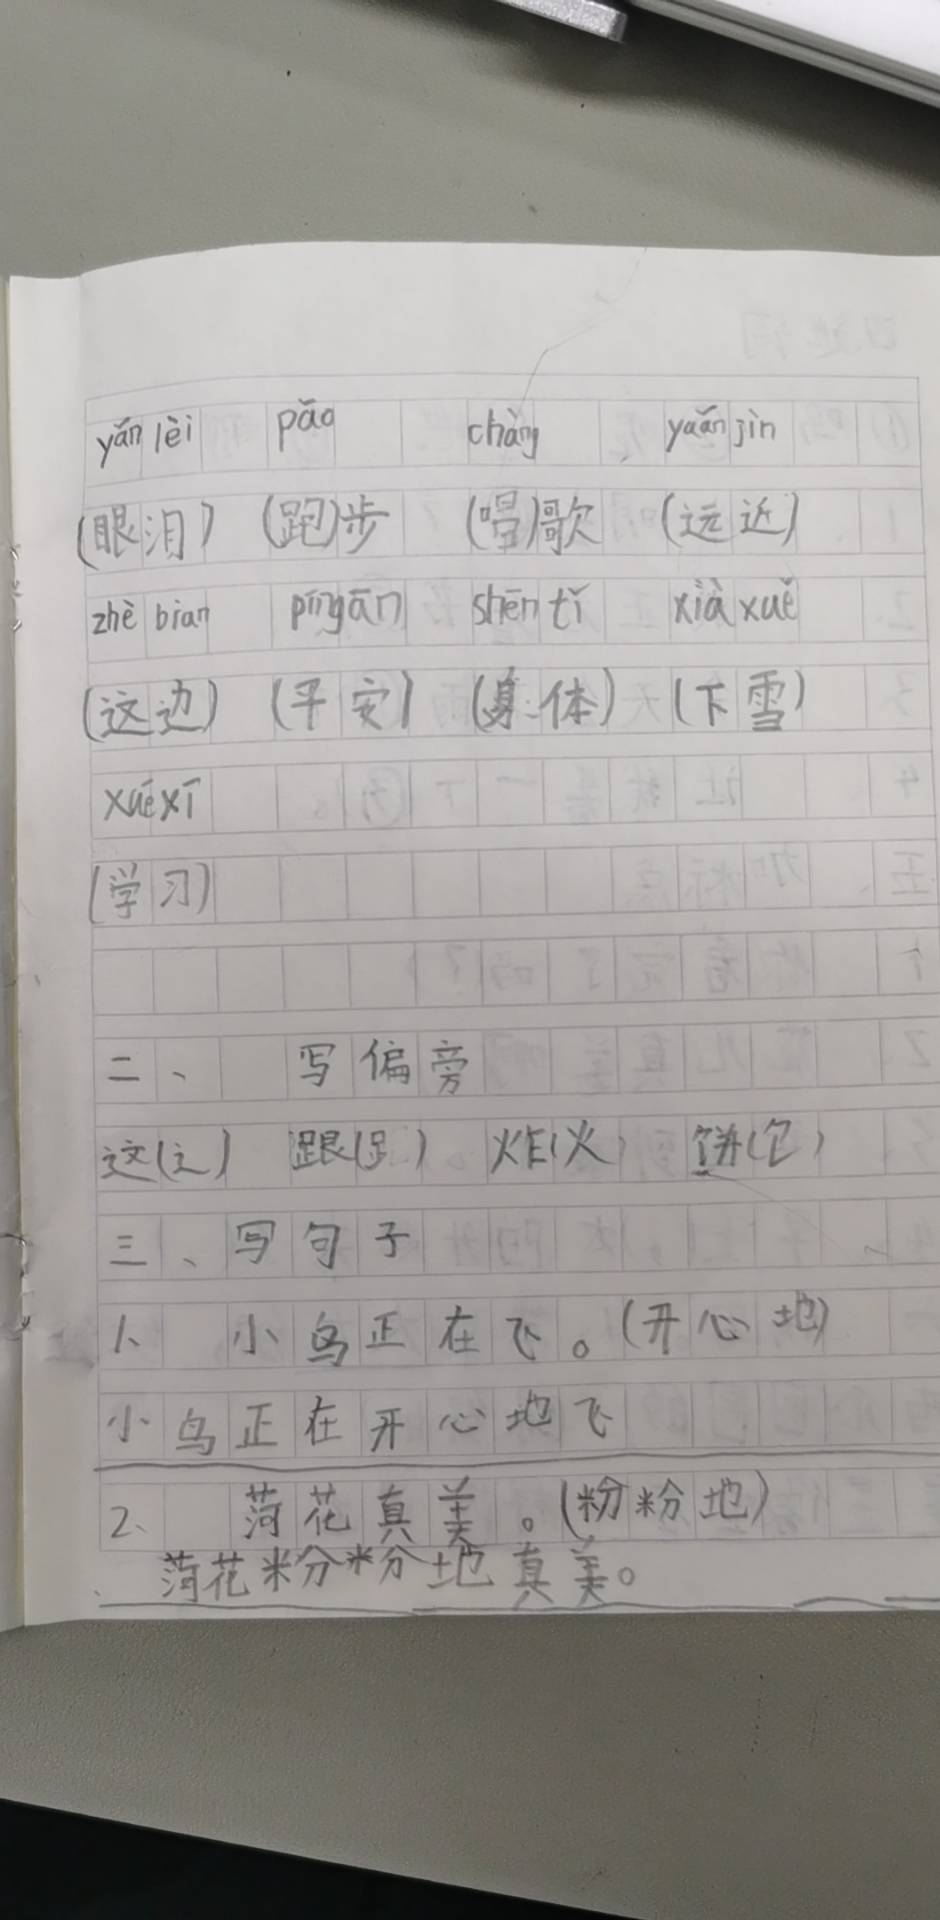 yǎn lèi pǎo chàng yuǎn jìn
(眼泪) (跑)步 (唱)歌 (远近)
zhè bian píngān shēn tǐ xià xuě
(这边) (平安) (身体) (下雪)
xué xī
(学习)
二、 写偏旁
这(辶) 跟(⻊) 炸(火) 饼(饣)
三、写句子
1、 小鸟正在飞。(开心地)
小鸟正在开心地飞
2、 荷花真美。(粉粉地)
荷花粉粉地真美。